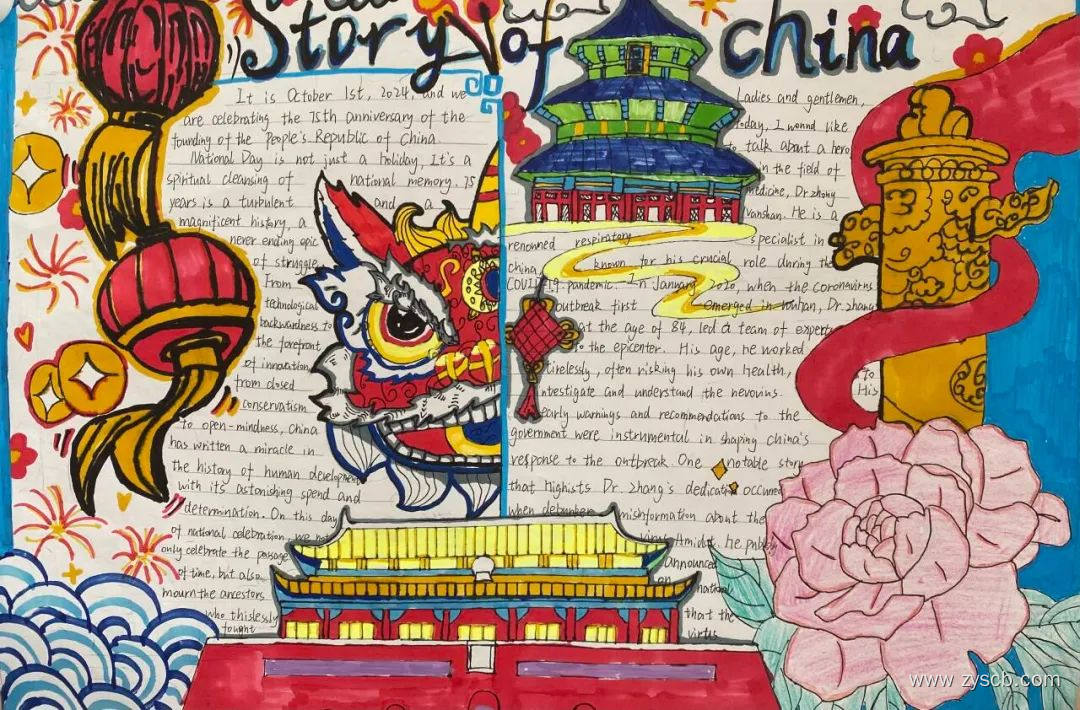 Story of china
It is October 1st, 2024, and we
are celebrating the 75th anniversary of the
founding of the People's Republic of China
National Day is not just a Holiday, It's a
spiritual cleansing of national memory. 75
years is a turbulent and a
magnificent history, a
never ending epic
of struggle
From
technological
backwardness to
the forefront
of innovation
from closed
conservatism
to open-mindness, China
has written a miracle in
the history of human development
with its astonishing spend and
determination. On this day
of national celebration, we not
only celebrate the passage
of time, but also
mourn the ancestors
who thislessly
fought
Ladies and gentlemen,
Today, I wound like
to talk about a hero
in the field of
medicine, Dr zhong
Nanshan. He is a
renowned respiratory specialist in
china, known for his crucial role during the
COVID-19 pandemic. In January 2020, when the coronavirus
outbreak first emerged in Wuhan, Dr. zhang
at the age of 84, led a team of experts
to the epicenter. His age, he worked
tirelessly, often risking his own health, to
investigate and understand the nevourus. His
early warnings and recommendations to the
government were instrumental in shaping china's
response to the outbreak. One notable story
that highists Dr. zhang's dedication occured
when debunken misinformation about the
virus Amidst, he
announced
on national
that the
virus
www.zyscb.com